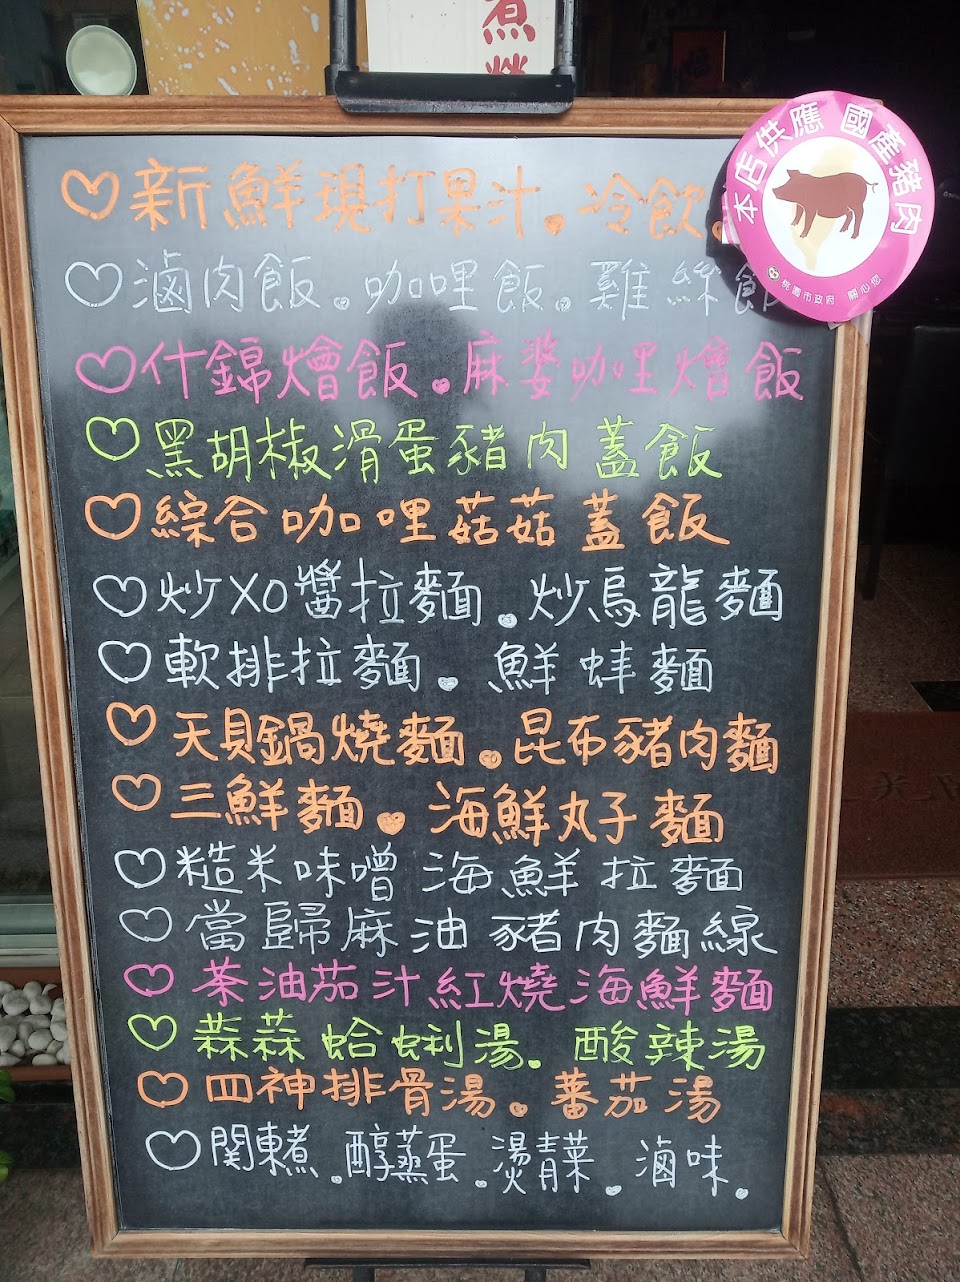 煮營
本店供應 國產豬肉
桃園市政府 關心您
♡新鮮現打果汁.冷飲.
♡滷肉飯.咖哩飯.雞絲飯
♡什錦燴飯.麻婆咖哩燴飯
♡黑胡椒滑蛋豬肉蓋飯
♡綜合咖哩菇菇蓋飯
♡炒XO醬拉麵.炒烏龍麵
♡軟排拉麵.鮮蚌麵
♡天貝鍋燒麵.昆布豬肉麵
♡三鮮麵.海鮮丸子麵
♡糙米味噌海鮮拉麵
♡當歸麻油豬肉麵線
♡茶油茄汁紅燒海鮮麵
♡蒜蒜蛤蜊湯.酸辣湯
♡四神排骨湯.蕃茄湯
♡関東煮.醇蒸蛋.燙青菜.滷味.